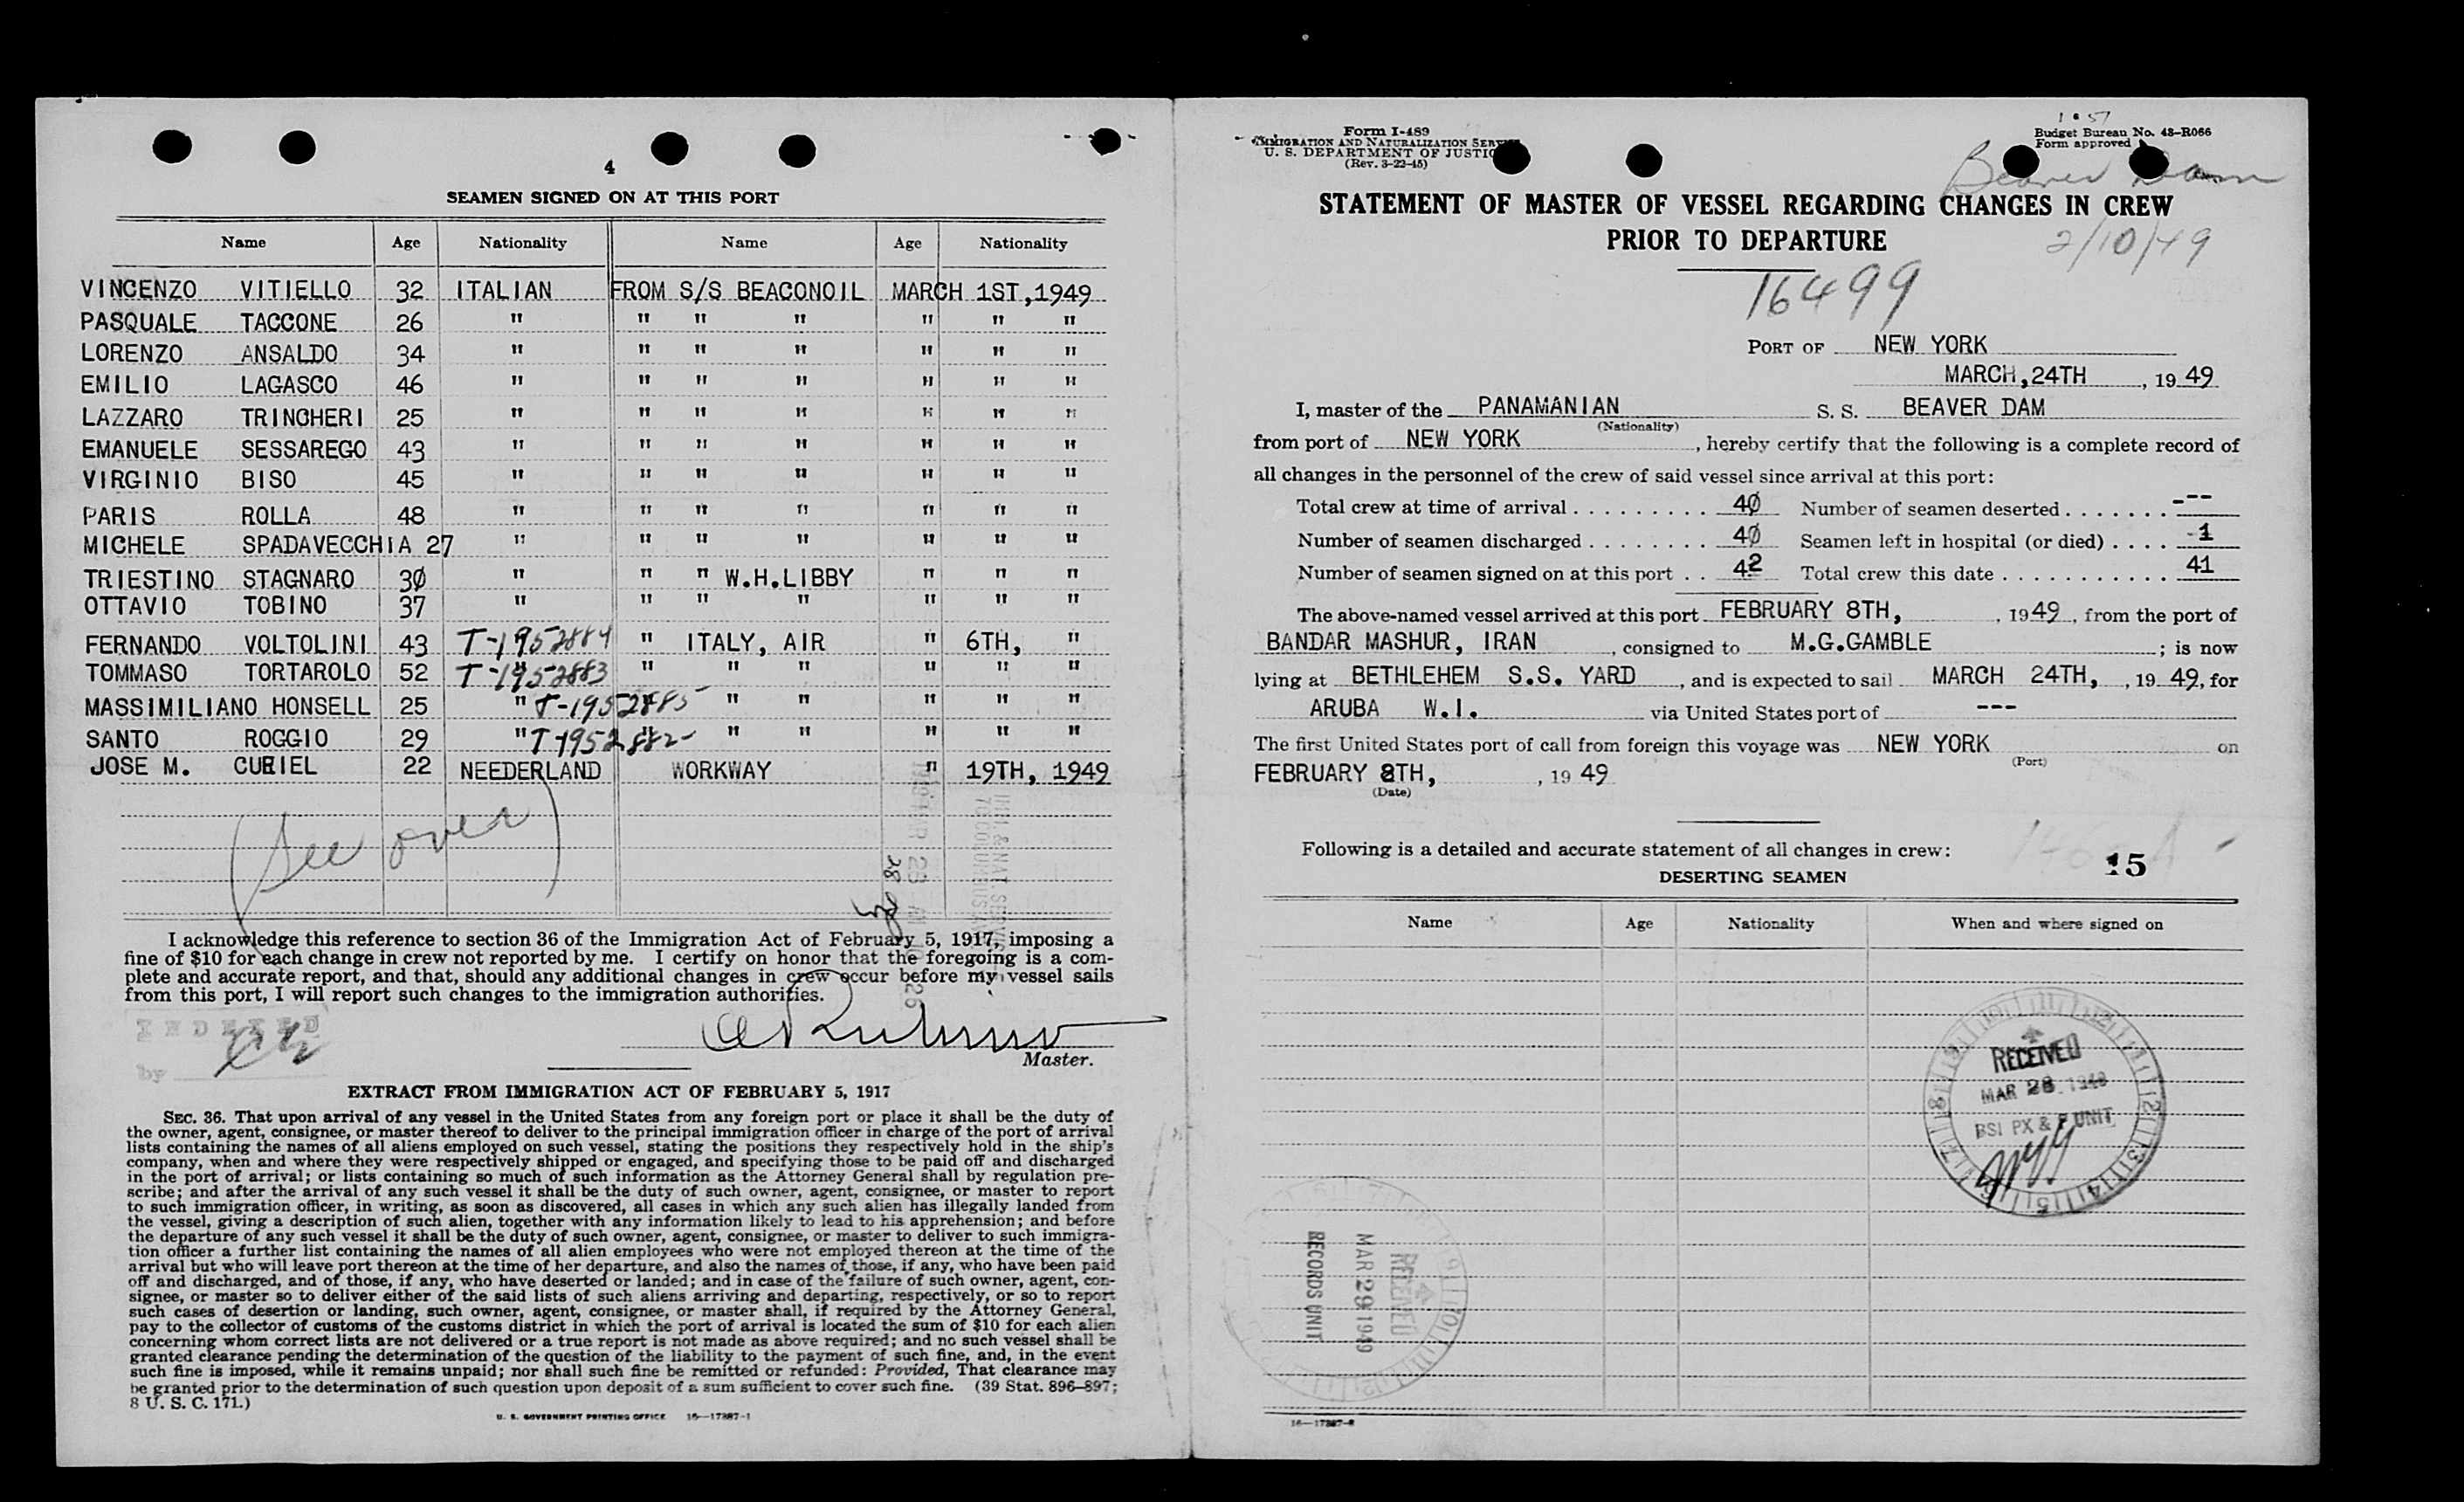 4
SEAMEN SIGNED ON AT THIS PORT
Name Age Nationality Name Age Nationality
VINCENZO VITIELLO 32 ITALIAN FROM S/S BEACONOIL MARCH 1ST,1949
PASQUALE TACCONE 26 " " " " " " "
LORENZO ANSALDO 34 " " " " " " "
EMILIO LAGASCO 46 " " " " " " "
LAZZARO TRINCHERI 25 " " " " " " "
EMANUELE SESSAREGO 43 " " " " " " "
VIRGINIO BISO 45 " " " " " " "
PARIS ROLLA 48 " " " " " " "
MICHELE SPADAVECCHIA 27 " " " " " " "
TRIESTINO STAGNARO 30 " " " W.H.LIBBY " " "
OTTAVIO TOBINO 37 " " " " " " "
FERNANDO VOLTOLINI 43 T-1952884 " ITALY, AIR " 6TH, "
TOMMASO TORTAROLO 52 T-1952883 " " " " " "
MASSIMILIANO HONSELL 25 " T-1952885 " " " " "
SANTO ROGGIO 29 " T-1952882 " " " " "
JOSE M. CURIEL 22 NEEDERLAND WORKWAY " 19TH, 1949
(See over)
I acknowledge this reference to section 36 of the Immigration Act of February 5, 1917, imposing a
fine of $10 for each change in crew not reported by me. I certify on honor that the foregoing is a com-
plete and accurate report, and that, should any additional changes in crew occur before my vessel sails
from this port, I will report such changes to the immigration authorities.
INDEXED
by
Master.
EXTRACT FROM IMMIGRATION ACT OF FEBRUARY 5, 1917
SEC. 36. That upon arrival of any vessel in the United States from any foreign port or place it shall be the duty of
the owner, agent, consignee, or master thereof to deliver to the principal immigration officer in charge of the port of arrival
lists containing the names of all aliens employed on such vessel, stating the positions they respectively hold in the ship's
company, when and where they were respectively shipped or engaged, and specifying those to be paid off and discharged
in the port of arrival; or lists containing so much of such information as the Attorney General shall by regulation pre-
scribe; and after the arrival of any such vessel it shall be the duty of such owner, agent, consignee, or master to report
to such immigration officer, in writing, as soon as discovered, all cases in which any such alien has illegally landed from
the vessel, giving a description of such alien, together with any information likely to lead to his apprehension; and before
the departure of any such vessel it shall be the duty of such owner, agent, consignee, or master to deliver to such immigra-
tion officer a further list containing the names of all alien employees who were not employed thereon at the time of the
arrival but who will leave port thereon at the time of her departure, and also the names of those, if any, who have been paid
off and discharged, and of those, if any, who have deserted or landed; and in case of the failure of such owner, agent, con-
signee, or master so to deliver either of the said lists of such aliens arriving and departing, respectively, or so to report
such cases of desertion or landing, such owner, agent, consignee, or master shall, if required by the Attorney General,
pay to the collector of customs of the customs district in which the port of arrival is located the sum of $10 for each alien
concerning whom correct lists are not delivered or a true report is not made as above required; and no such vessel shall be
granted clearance pending the determination of the question of the liability to the payment of such fine, and, in the event
such fine is imposed, while it remains unpaid; nor shall such fine be remitted or refunded: Provided, That clearance may
be granted prior to the determination of such question upon deposit of a sum sufficient to cover such fine. (39 Stat. 896–897;
8 U. S. C. 171.)
U. S. GOVERNMENT PRINTING OFFICE 16—17387-1
Form I-489
IMMIGRATION AND NATURALIZATION SERVICE
U. S. DEPARTMENT OF JUSTICE
(Rev. 3-22-45)
Budget Bureau No. 43–R066
Form approved
Beaver Dam
STATEMENT OF MASTER OF VESSEL REGARDING CHANGES IN CREW
PRIOR TO DEPARTURE
2/10/49
16499
PORT OF NEW YORK
MARCH,24TH , 19 49
I, master of the PANAMANIAN S. S. BEAVER DAM
(Nationality)
from port of NEW YORK , hereby certify that the following is a complete record of
all changes in the personnel of the crew of said vessel since arrival at this port:
Total crew at time of arrival . . . . . . . . . 40 Number of seamen deserted . . . . . . . ---
Number of seamen discharged . . . . . . . . 40 Seamen left in hospital (or died) . . . . -1
Number of seamen signed on at this port . . 42 Total crew this date . . . . . . . . . . . . 41
The above-named vessel arrived at this port FEBRUARY 8TH, , 1949, from the port of
BANDAR MASHUR, IRAN , consigned to M.G.GAMBLE ; is now
lying at BETHLEHEM S.S. YARD , and is expected to sail MARCH 24TH, , 19 49, for
ARUBA W.I. via United States port of ---
The first United States port of call from foreign this voyage was NEW YORK on
(Port)
FEBRUARY 8TH, , 19 49
(Date)
Following is a detailed and accurate statement of all changes in crew:
15
DESERTING SEAMEN
Name Age Nationality When and where signed on
RECEIVED
MAR 28 1949
BSI PX & F UNIT
RECEIVED
MAR 29 1949
RECORDS UNIT